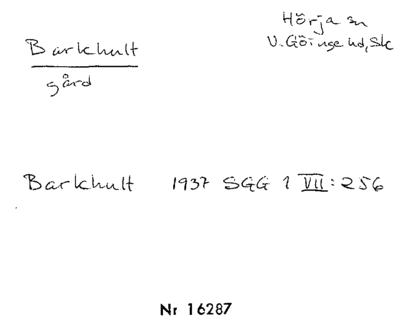 Barkhult
gård
Hörja sn
V. Göinge hd, Sk
Barkhult 1937 SGG 1 VII: 256
Nr 16287